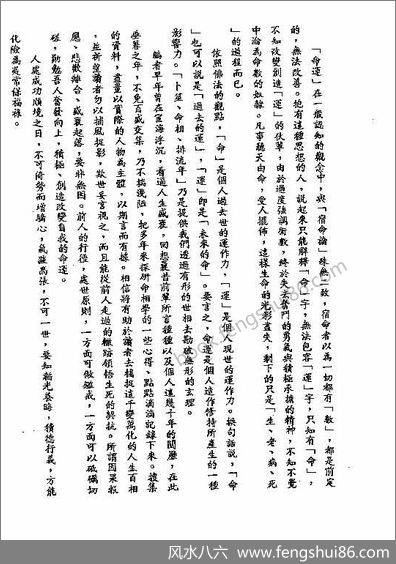 「命運」在一般認知的觀念中，與「宿命論」殊無二致，宿命者以為一切都有「數」，都是前定
的，無法改善。抱有這種思想的人，說起來只能解釋「命」字，無法包容「運」字，只知有「命」，
不知改變創造「運」的伕單，由於過度強調術數，終於失去奮鬥的勇氣與積極承擔的精神，不知不覺
中淪為命數的奴隸。凡事聽天由命，受人擺佈，這樣生命的光彩盡失，剩下的只是「生、老、病、死
」的過程而已。
依照佛法的觀點，「命」是個人過去世的運作力，「運」是個人現世的運作力。換句話說，「命
」也可以說是「過去的運」，「運」即是「未來的命」。要言之，命運是個人造作信持所產生的一種
影響力。「卜筮、命相、排流年」乃是提供我們透過有形的世相去勘破無形的玄理。
編者早年曾在宦海浮沉，看過人生盛衰。回想曩昔前輩所言種種以及個人這幾十年的閱歷，在此
垂暮之年，不免百感交集，乃不揣淺陋，把多年來探研命相學的一些心得、點點滴滴記錄下來。蒐集
的資料，盡量以實際的人物為主體，以期言而有據。相信將有助於讀者去捕捉這千變萬化的人生百相
，並祈望讀者勿以捕風捉影，欺世妄言視之，而且能從前人走過的轍跡領悟生死的契抗。所謂因果報
應、悲歡離合、盛衰起落，要非無因。前人的行徑，處世原則，一方面可做龜戒，一方面可以砥礪切
磋，勸勉吾人奮發向上，積極、創造改變自我的命運。
人處成功順境之日，不可倚勢而增驕心，氣燄萬張，不可一世，要知韜光養晦，積德行義，方能
化險為夷常保福祿。
book.fengshui86.com
风水八六 www.fengshui86.com